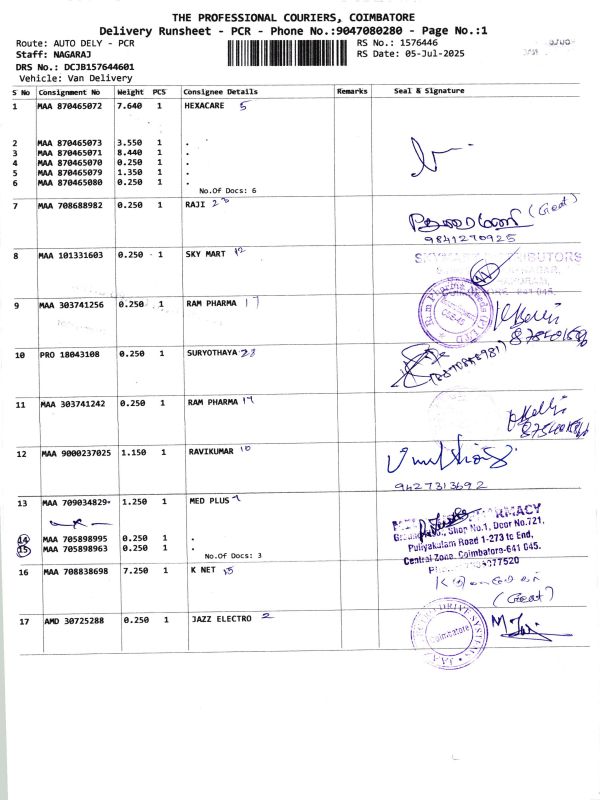 THE PROFESSIONAL COURIERS, COIMBATORE
Delivery Runsheet - PCR - Phone No.:9047080280 - Page No.:1
Route: AUTO DELY - PCR
RS No.: 1576446
Staff: NAGARAJ
RS Date: 05-Jul-2025
DRS No.: DCJB157644601
Vehicle: Van Delivery
S No Consignment No Weight PCS Consignee Details Remarks Seal & Signature
1 MAA 870465072 7.640 1 HEXACARE 5
2 MAA 870465073 3.550 1 .
3 MAA 870465071 8.440 1 .
4 MAA 870465070 0.250 1 .
5 MAA 870465079 1.350 1 .
6 MAA 870465080 0.250 1 .
No.Of Docs: 6
7 MAA 708688982 0.250 1 RAJI
9841270925
8 MAA 101331603 0.250 1 SKY MART 12
9 MAA 303741256 0.250 1 RAM PHARMA 17
10 PRO 18043108 0.250 1 SURYOTHAYA
11 MAA 303741242 0.250 1 RAM PHARMA 17
12 MAA 9000237025 1.150 1 RAVIKUMAR 10
9427313692
13 MAA 709034829 1.250 1 MED PLUS
14 MAA 705898995 0.250 1 .
15 MAA 705898963 0.250 1 .
No.Of Docs: 3
PHARMACY
Shop No.1, Door No.721,
Puliyakulam Road 1-273 to End,
Central Zone, Coimbatore-641 045.
16 MAA 708838698 7.250 1 K NET 15
17 AMD 30725288 0.250 1 JAZZ ELECTRO 2
DRIVE SYSTEMS
Coimbatore